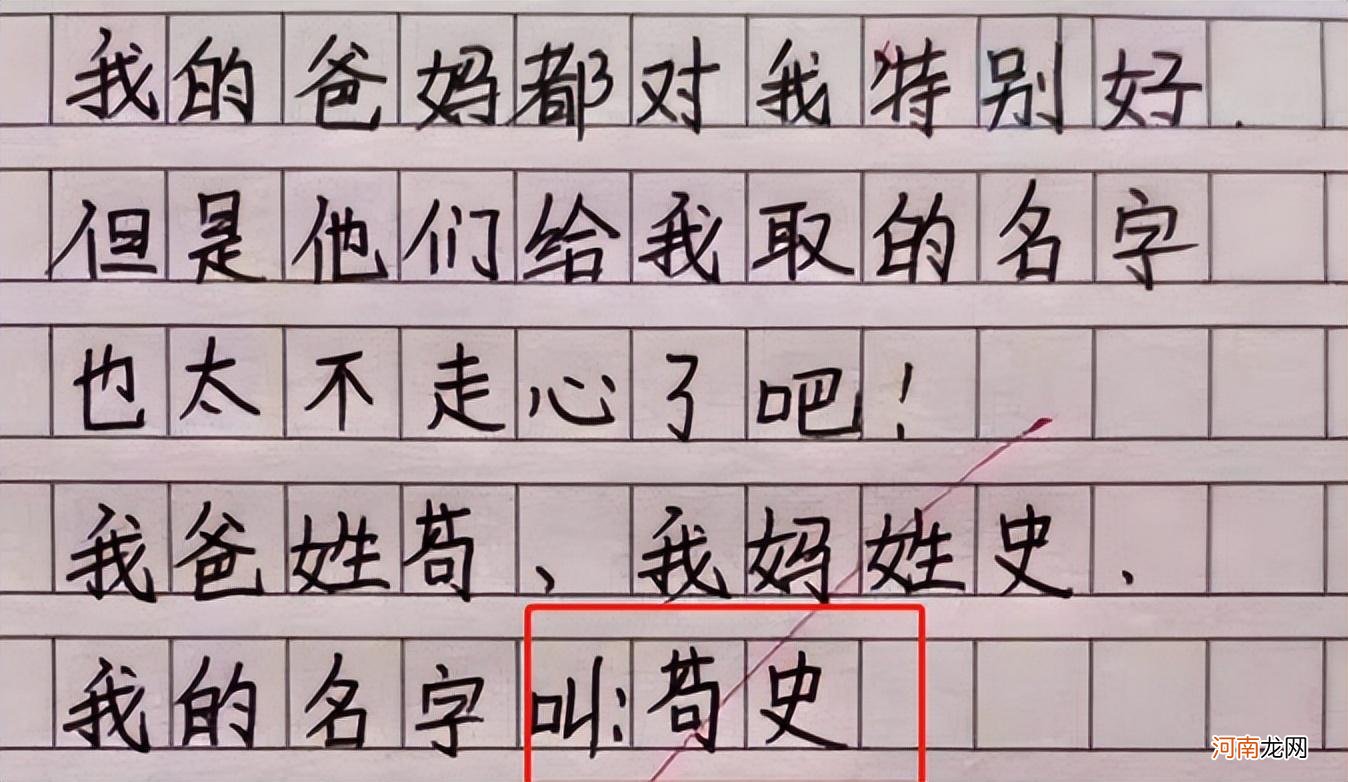 我的爸妈都对我特别好.
但是他们给我取的名字
也太不走心了吧!
我爸姓苟、我妈姓史.
我的名字叫:苟史
河南龙网